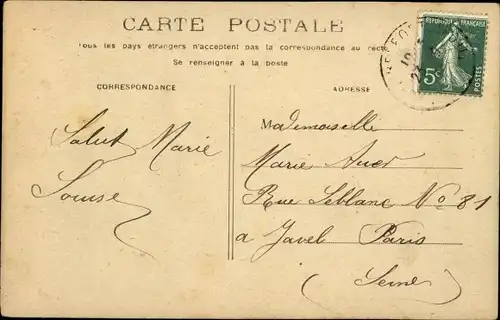 CARTE POSTALE
Tous les pays étrangers n'acceptent pas la correspondance au recto
Se renseigner à la poste
CORRESPONDANCE
ADRESSE
REPUBLIQUE FRANÇAISE
5c
POSTES
Salut Marie
Louise
Mademoiselle
Marie
Rue Leblanc No 81
a Javel Paris
(Seine)